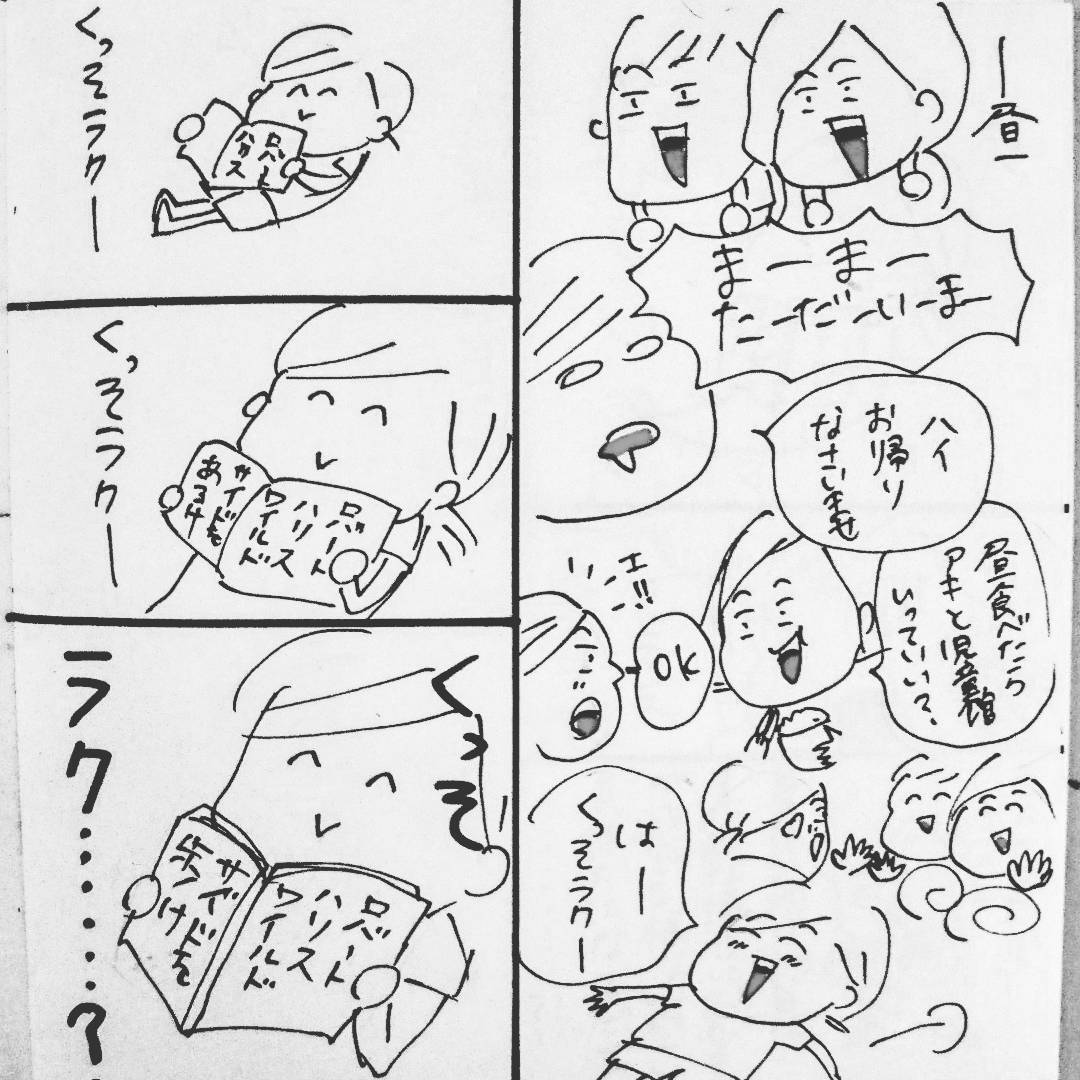 ー昼ー
まーまー
たーだーいーまー
ハイ
お帰り
なさいませ
昼食べたら
アキと児童館
いっていい?
OK
いいエー!!
はー
くっそラクー
くっそラクー
ロバート
ハリス
くっそラクー
ロバート
ハリス
ワイルド
サイドを
あるけ
くっそ
ラク・・・・・・?
ロバート
ハリス
ワイルド
サイドを
歩け